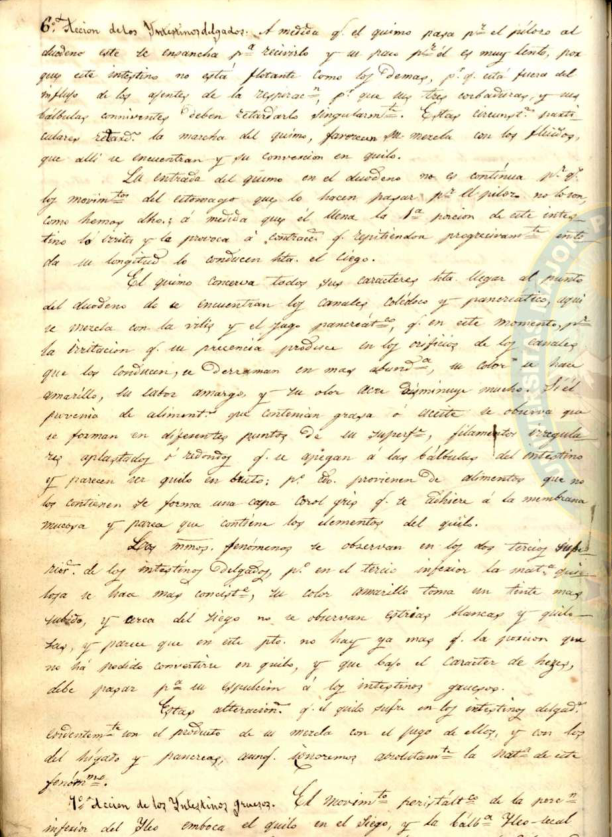 6ª Accion de los Yntestinos delgados. A medida q.e el quimo pasa p.r el píloro al
duodeno este se ensancha p.ª recivirlo y su paso p.r él es muy lento, por
que este intestino no está flotante como los demas, p.r q. está fuera del
influjo de los ajentes de la respirac.n, p.r que sus tres corbaduras, y sus
bálbulas connirentes deben retardarlo singularm.te. Estas circunst.s parti
culares retard.n la marcha del quimo, favorecen su mezcla con los fluidos,
que alli se encuentran y su convercion en quilo.
La entrada del quimo en el duodeno no es contínua p.r q.e
los movim.tos del estomago que lo hacen pasar p.r el piloro no lo son,
como hemos dho.; á medida que el llena la 1ª porcion de este intes-
tino lo irrita y la provoca á contracc.n q. repitiendose progresivam.te en to
da su longitud lo conducen hta. el ciego.
El quimo conserva todos sus caracteres hta. llegar al punto
del duodeno do se encuentran los canales colédoco y pancreático, aqui
se mezcla con la vilis y el jugo pancreát.co, q. en este momento, p.r
la irritacion q. su precencia produce en los orificios de los canales
que los conducen, se derraman en mas abund.ª, su color se hace
amarillo, su sabor amargo, y su olor acre disminuye mucho. Si él
provenia de aliment.s que contenian grasa ó aceite se observa que
se forman en diferentes puntos de su superf.e, filamentos irregula
res aplastados ó redondos q. se apegan á las bálbulas del intestino
y parecen ser quilo en bruto; p.º provienen de alimentos que no
los contienen se forma una capa color gris q. se adhiere á la membrana
mucosa y parece que contiene los elementos del quilo.
Los mmos. fenómenos se observan en los dos tercios supe
rior.s de los intestinos delgados, p.º en el tercio inferior la mat.ª qui
losa se hace mas consist.e, su color amarillo toma un tinte mas
subido, y cerca del siego no se observan estrias blancas y quilo-
sas, y parece que en este pto. no hay ya mas q. la porcion que
no há podido convertirse en quilo, y que bajo el caracter de hezes,
debe pasar p.ª su espulcion á los intestinos gruesos.
Estas alteracion.s q. el quilo sufre en los intestinos delgad.s
con el producto de su mezcla con el jugo de ellos, y con los
del hígado y pancreas, aunq. ignoremos absolutam.te la nat.ª de este
fenóm.no.
7ª Accion de los Yntestinos gruesos. El movim.to peristált.co de la porc.n
inferior del Yleo emboca el quilo en el siego, y la bálb.ª Yleo-cecal